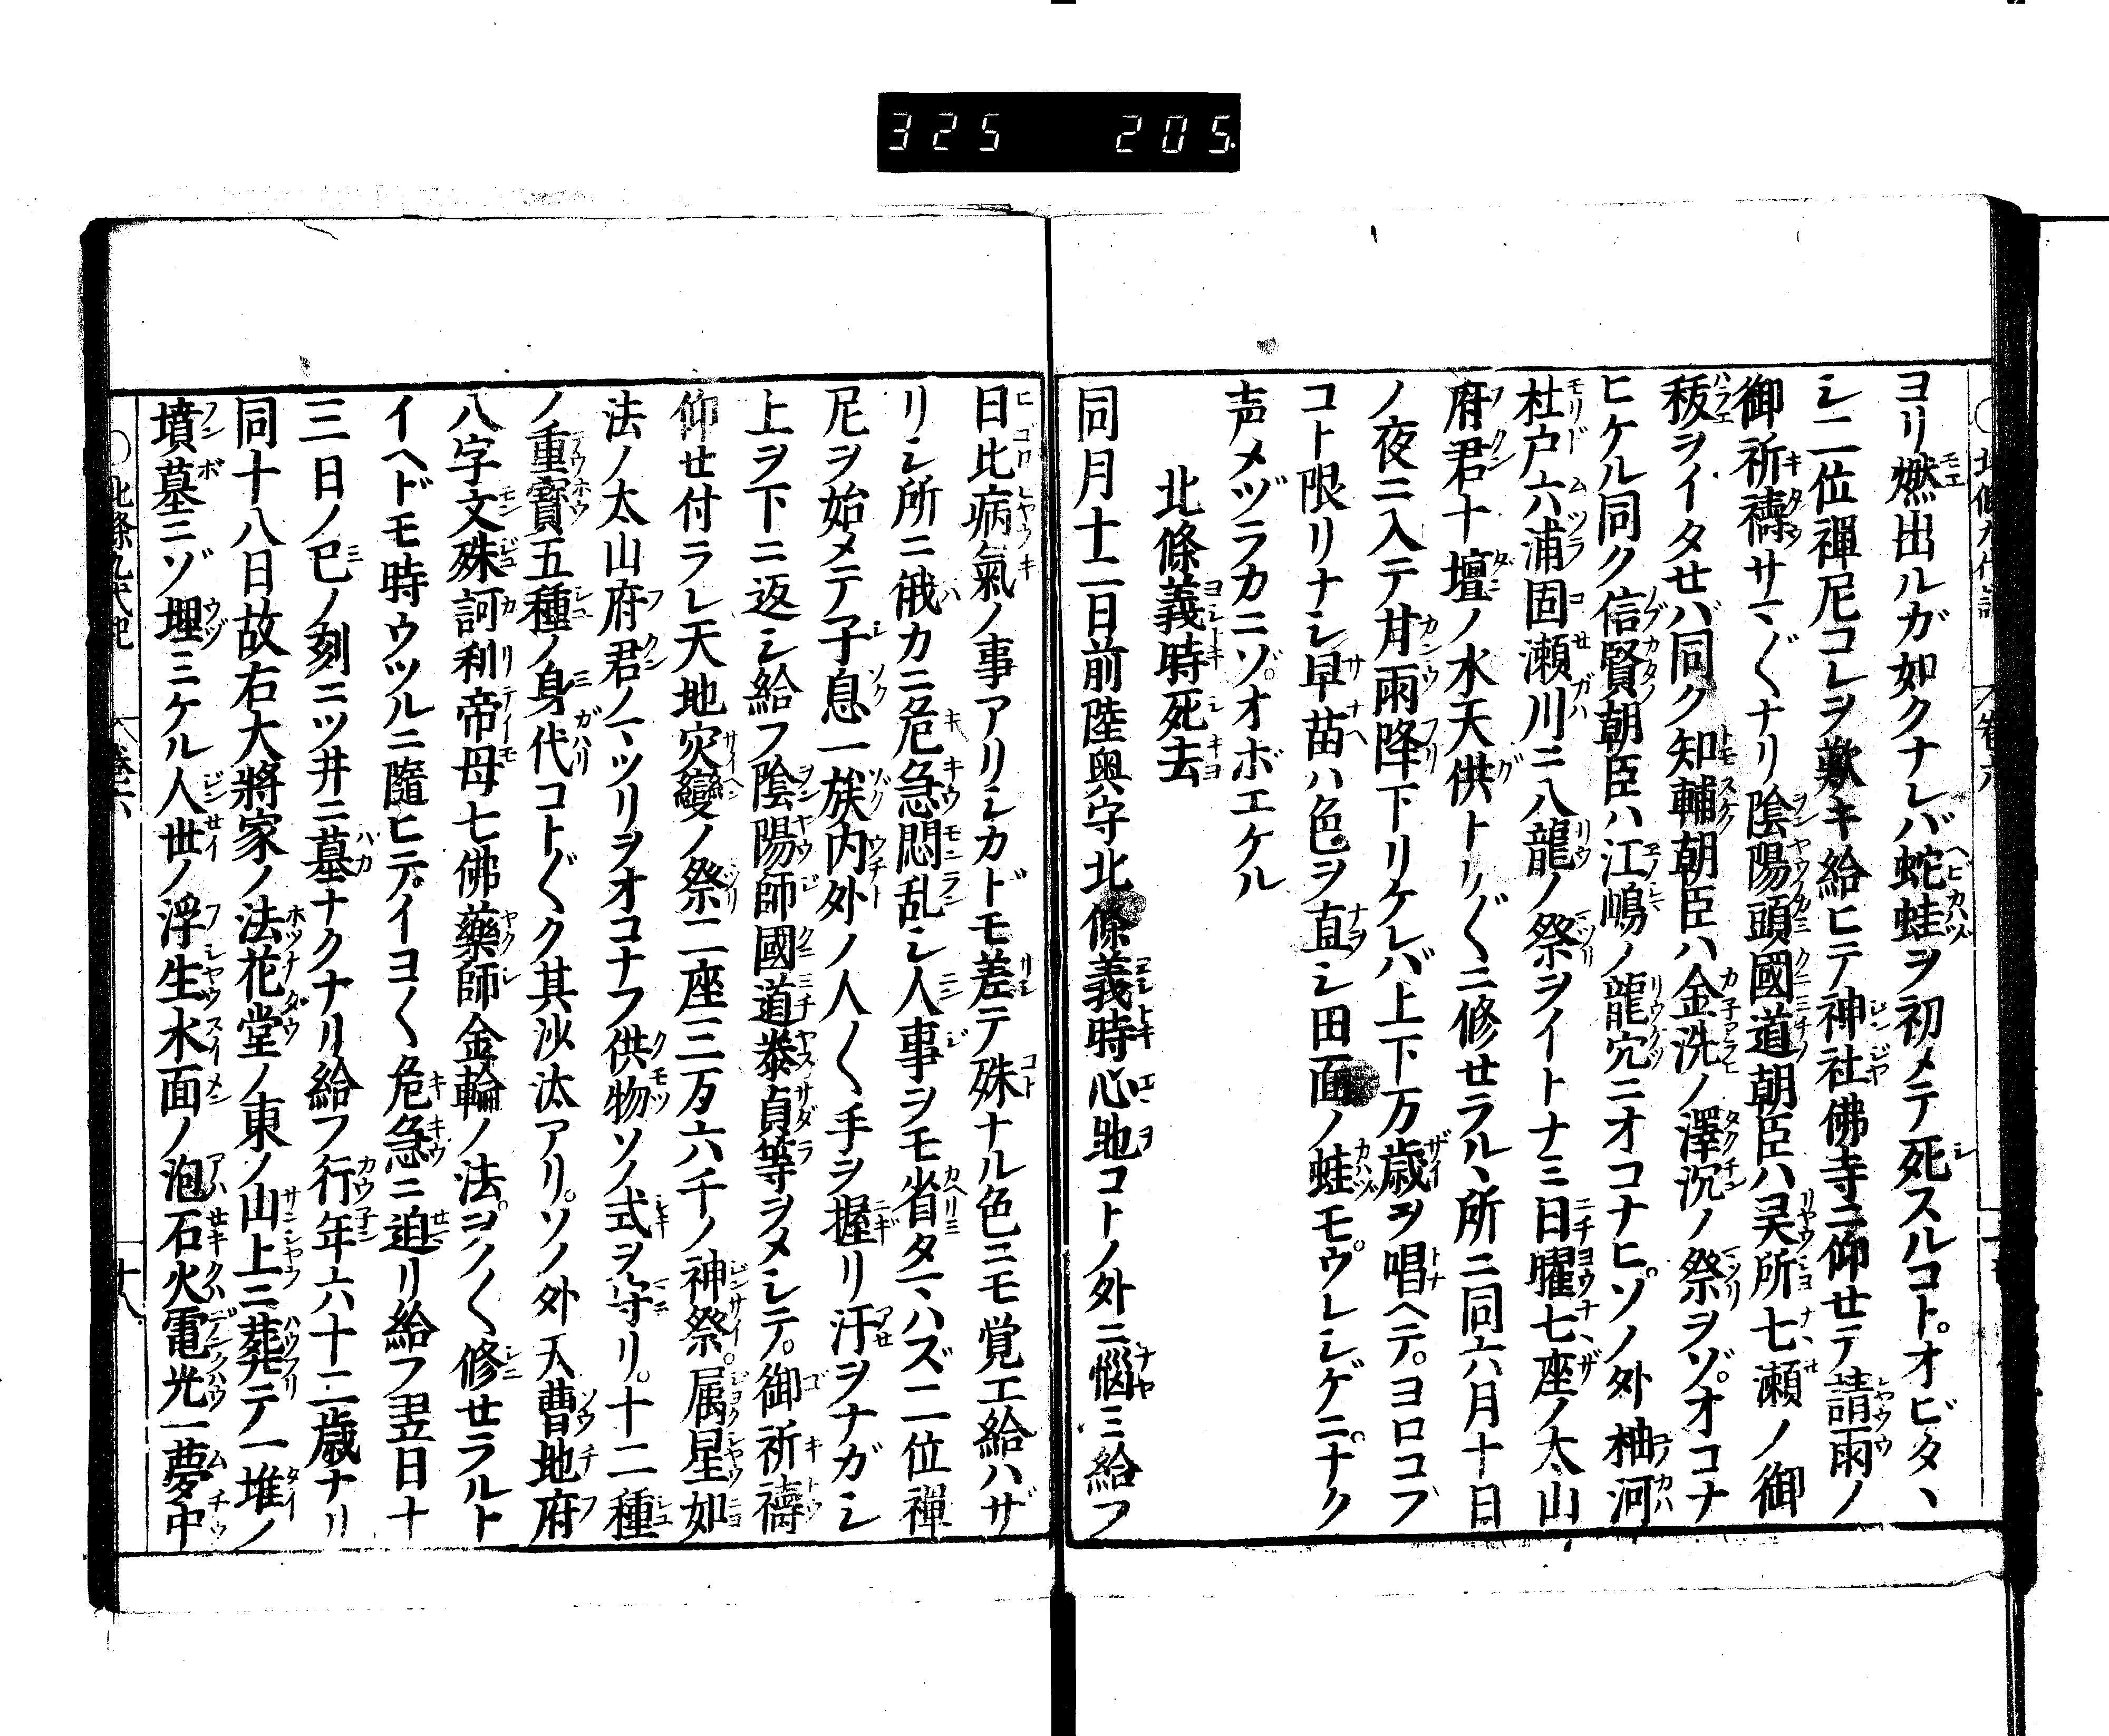 325 205.
ヨリ燃出ルガ如クナレバ蛇蛙ヲ初メテ死スルコト。オビタヽ
シ二位禪尼コレヲ歎キ給ヒテ神社佛寺ニ仰セテ請雨ノ
御祈禱サマ〴〵ナリ陰陽頭國道朝臣ハ呉所七瀬ノ御
秡ヲイタセバ同ク知輔朝臣ハ金洗ノ澤沉ノ祭ヲゾ。オコナ
ヒケル同ク信賢朝臣ハ江嶋ノ龍穴ニオコナヒ。ソノ外柚河
杜戸六浦固瀬川ニ八龍ノ祭ヲイトナミ日曜七座ノ太山
府君十壇ノ水天供トリ〴〵ニ修セラルヽ所ニ同六月十日
ノ夜ニ入テ甘雨降下リケレバ上下万歳ヲ唱ヘテ。ヨロコブ
コト限リナシ早苗ハ色ヲ直シ田面ノ蛙モ。ウレシゲニ。ナク
声メヅラカニゾ。オボエケル
北條義時死去
同月十二日前陸奥守北條義時心地コトノ外ニ惱ミ給フ
日比病氣ノ事アリシカドモ差テ殊ナル色ニモ覚エ給ハザ
リシ所ニ俄カニ危急悶乱シ人事ヲモ省タマハズ二位禪
尼ヲ始メテ子息一族内外ノ人〳〵手ヲ握リ汗ヲナガシ
上ヲ下ニ返シ給フ陰陽師國道泰貞等ヲメシテ。御祈禱
仰せ付ラレ天地灾變ノ祭二座三万六千ノ神祭。属星如
法ノ太山府君ノマツリヲオコナフ供物ソノ式ヲ守リ。十二種
ノ重寳五種ノ身代コト〴〵ク其沙汰アリ。ソノ外天曹地府
八字文殊訶利帝母七佛藥師金輪ノ法。ヲノ〳〵修せラルト
イヘドモ時ウツルニ隨ヒテ。イヨ〳〵危急ニ迫リ給フ翌日十
三日ノ巳ノ刻ニツ井ニ墓ナクナリ給フ行年六十二歳ナリ
同十八日故右大將家ノ法花堂ノ東ノ山上ニ葬テ一堆ノ
墳墓ニゾ埋ミケル人世ノ浮生水面ノ泡石火電光一夢中
北條九代記 卷六 十八